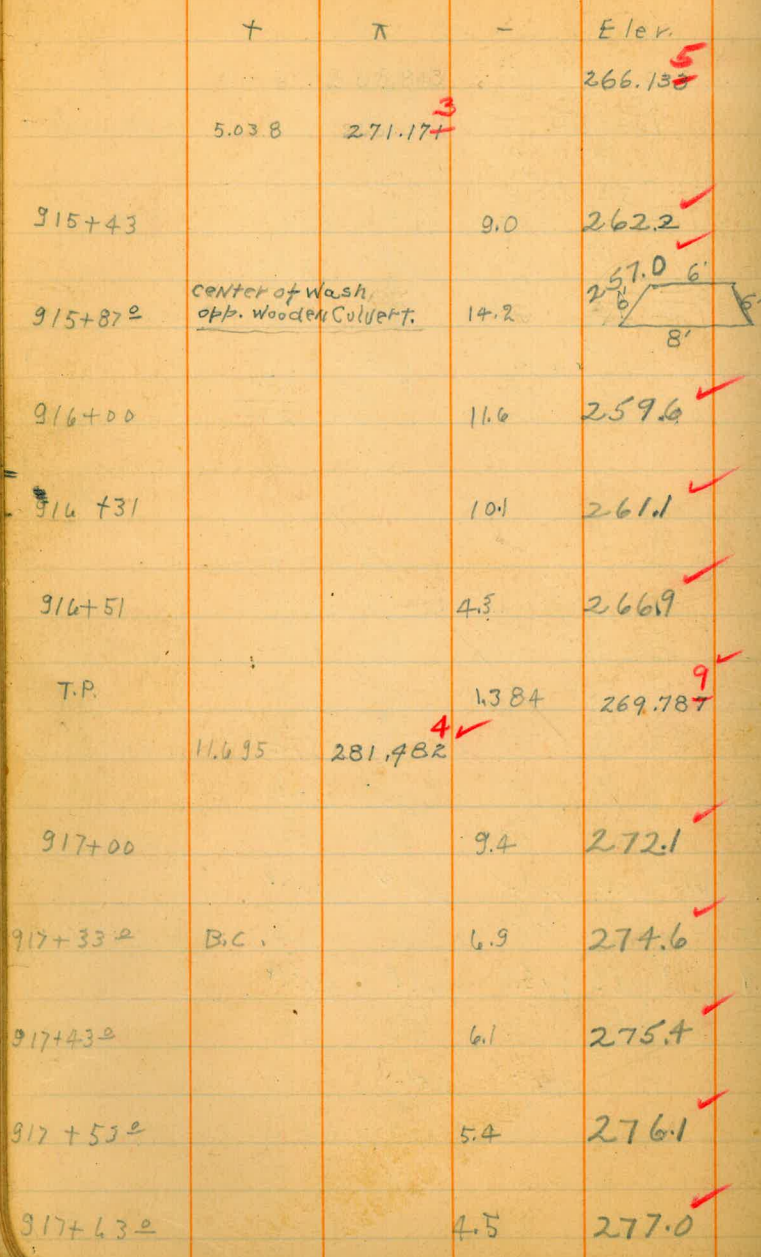 + π - Elev.
266.133 5
5.038 271.171 3
915+43 9.0 262.2
915+87º center of Wash, opp. Wooden Culvert. 14.2 257.0 6' 6' 6' 8'
916+00 11.6 259.6
916+31 10.1 261.1
916+51 4.3 266.9
T.P. 1.384 269.787 9
11.695 281.482 4
917+00 9.4 272.1
917+33º B.C. 6.9 274.6
917+43º 6.1 275.4
917+53º 5.4 276.1
917+63º 4.5 277.0